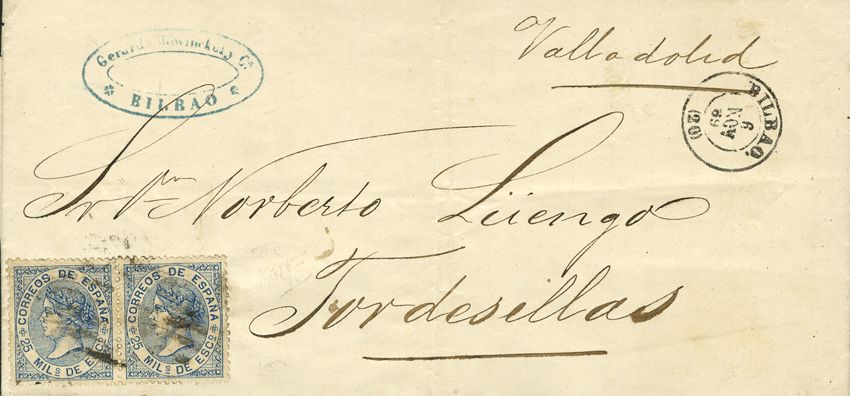 Gerard y C.ª
BILBAO
Valladolid
BILBAO.
6
NOV
69
(20)
Sr Dn Norberto Lüengo
Tordesillas
CORREOS DE ESPAÑA
25 MIL.s DE ESC.o
CORREOS DE ESPAÑA
25 MIL.s DE ESC.o